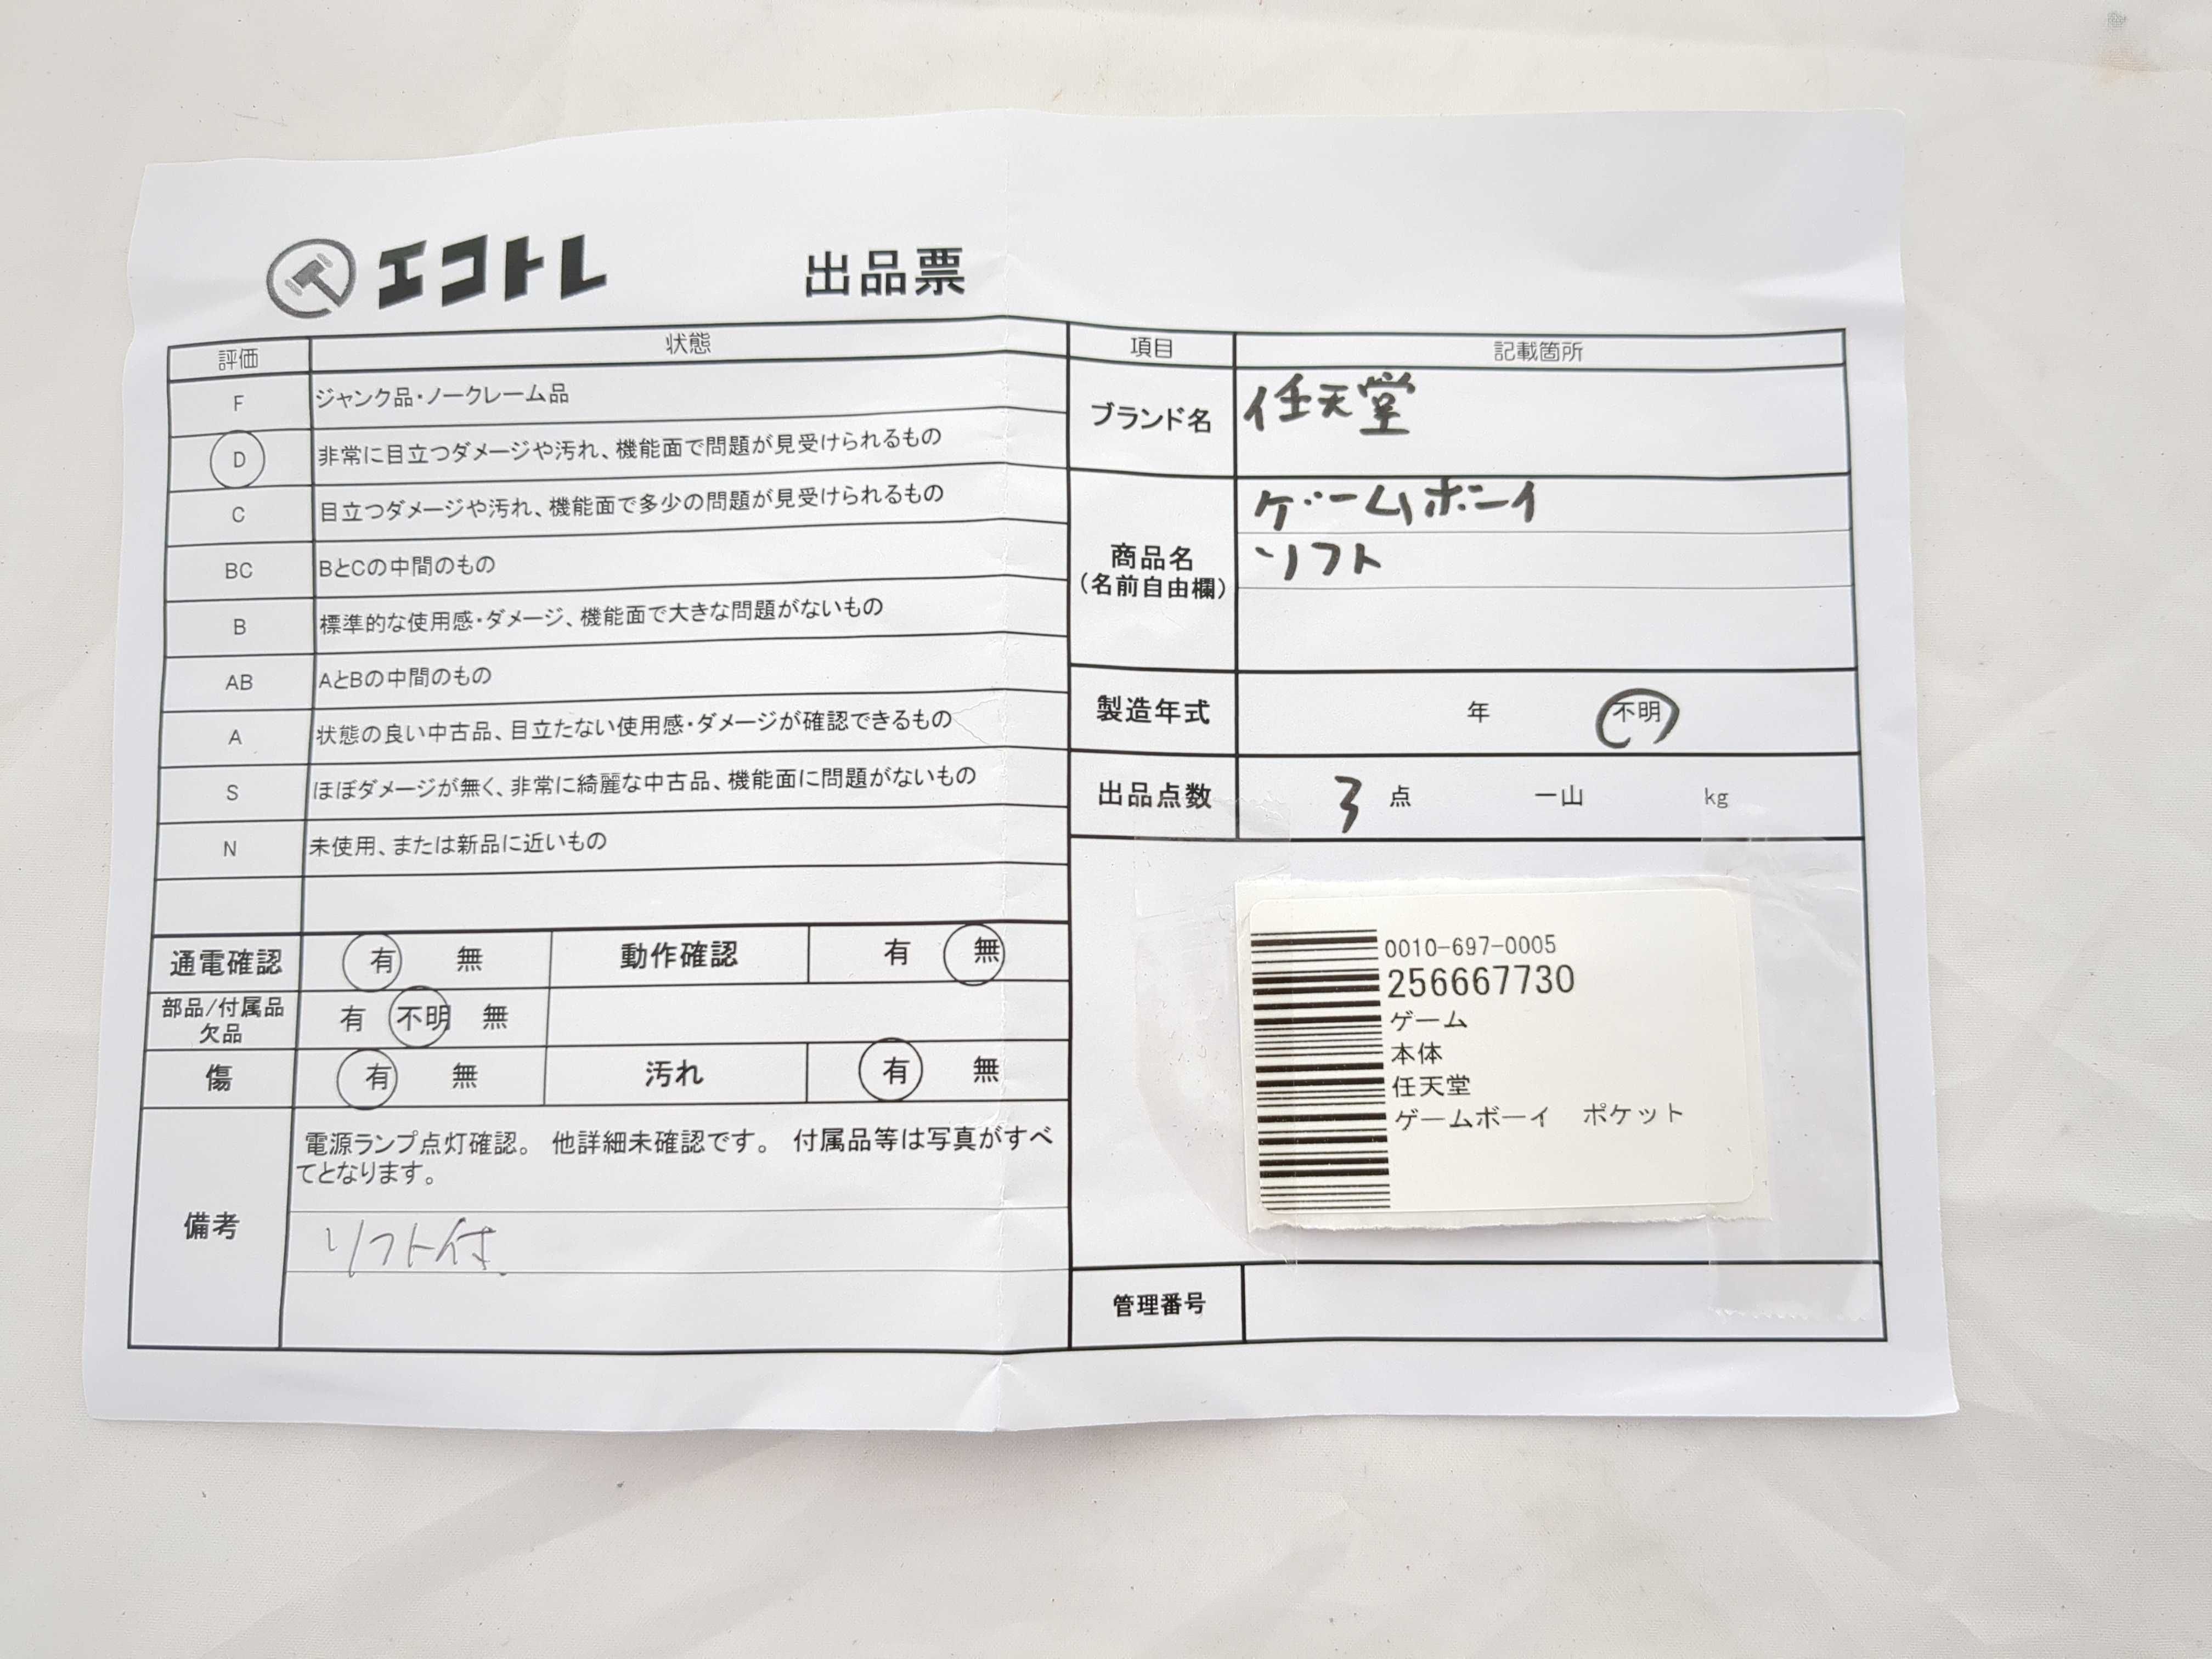 エコトレ 出品票
評価 状態
F ジャンク品・ノークレーム品
D 非常に目立つダメージや汚れ、機能面で問題が見受けられるもの
C 目立つダメージや汚れ、機能面で多少の問題が見受けられるもの
BC BとCの中間のもの
B 標準的な使用感・ダメージ、機能面で大きな問題がないもの
AB AとBの中間のもの
A 状態の良い中古品、目立たない使用感・ダメージが確認できるもの
S ほぼダメージが無く、非常に綺麗な中古品、機能面に問題がないもの
N 未使用、または新品に近いもの
通電確認 有 無 動作確認 有 無
部品/付属品
欠品
有 不明 無
傷 有 無 汚れ 有 無
備考
電源ランプ点灯確認。 他詳細未確認です。 付属品等は写真がすべ
てとなります。
ソフト付.
項目 記載箇所
ブランド名 任天堂
商品名
(名前自由欄)
ゲームボーイ
ソフト
製造年式 年 不明
出品点数 3 点 一山 kg
0010-697-0005
256667730
ゲーム
本体
任天堂
ゲームボーイ ポケット
管理番号